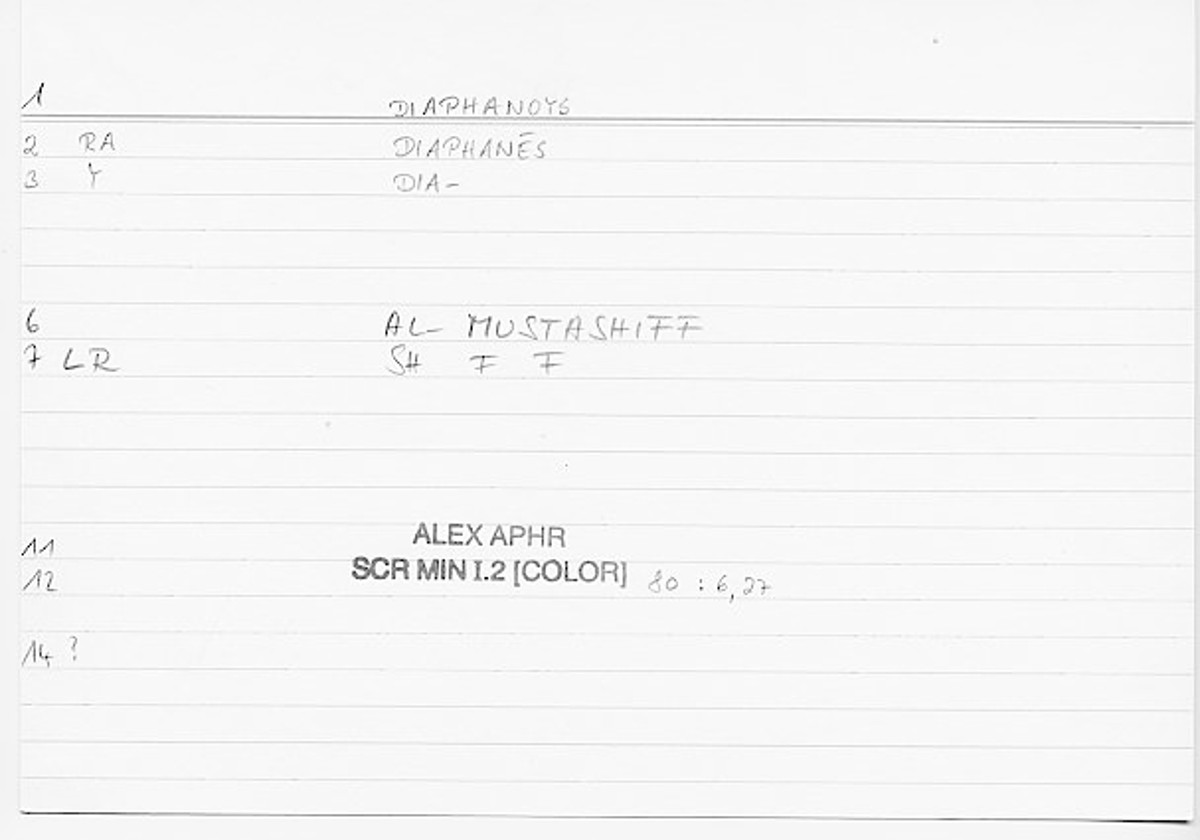 1 DIAPHANOYS
2 RA DIAPHANĒS
3 Y DIA-
6 AL- MUSTASHIFF
7 LR SH F F
11 ALEX APHR
12 SCR MIN I.2 [COLOR] 80 : 6,27
14 ?